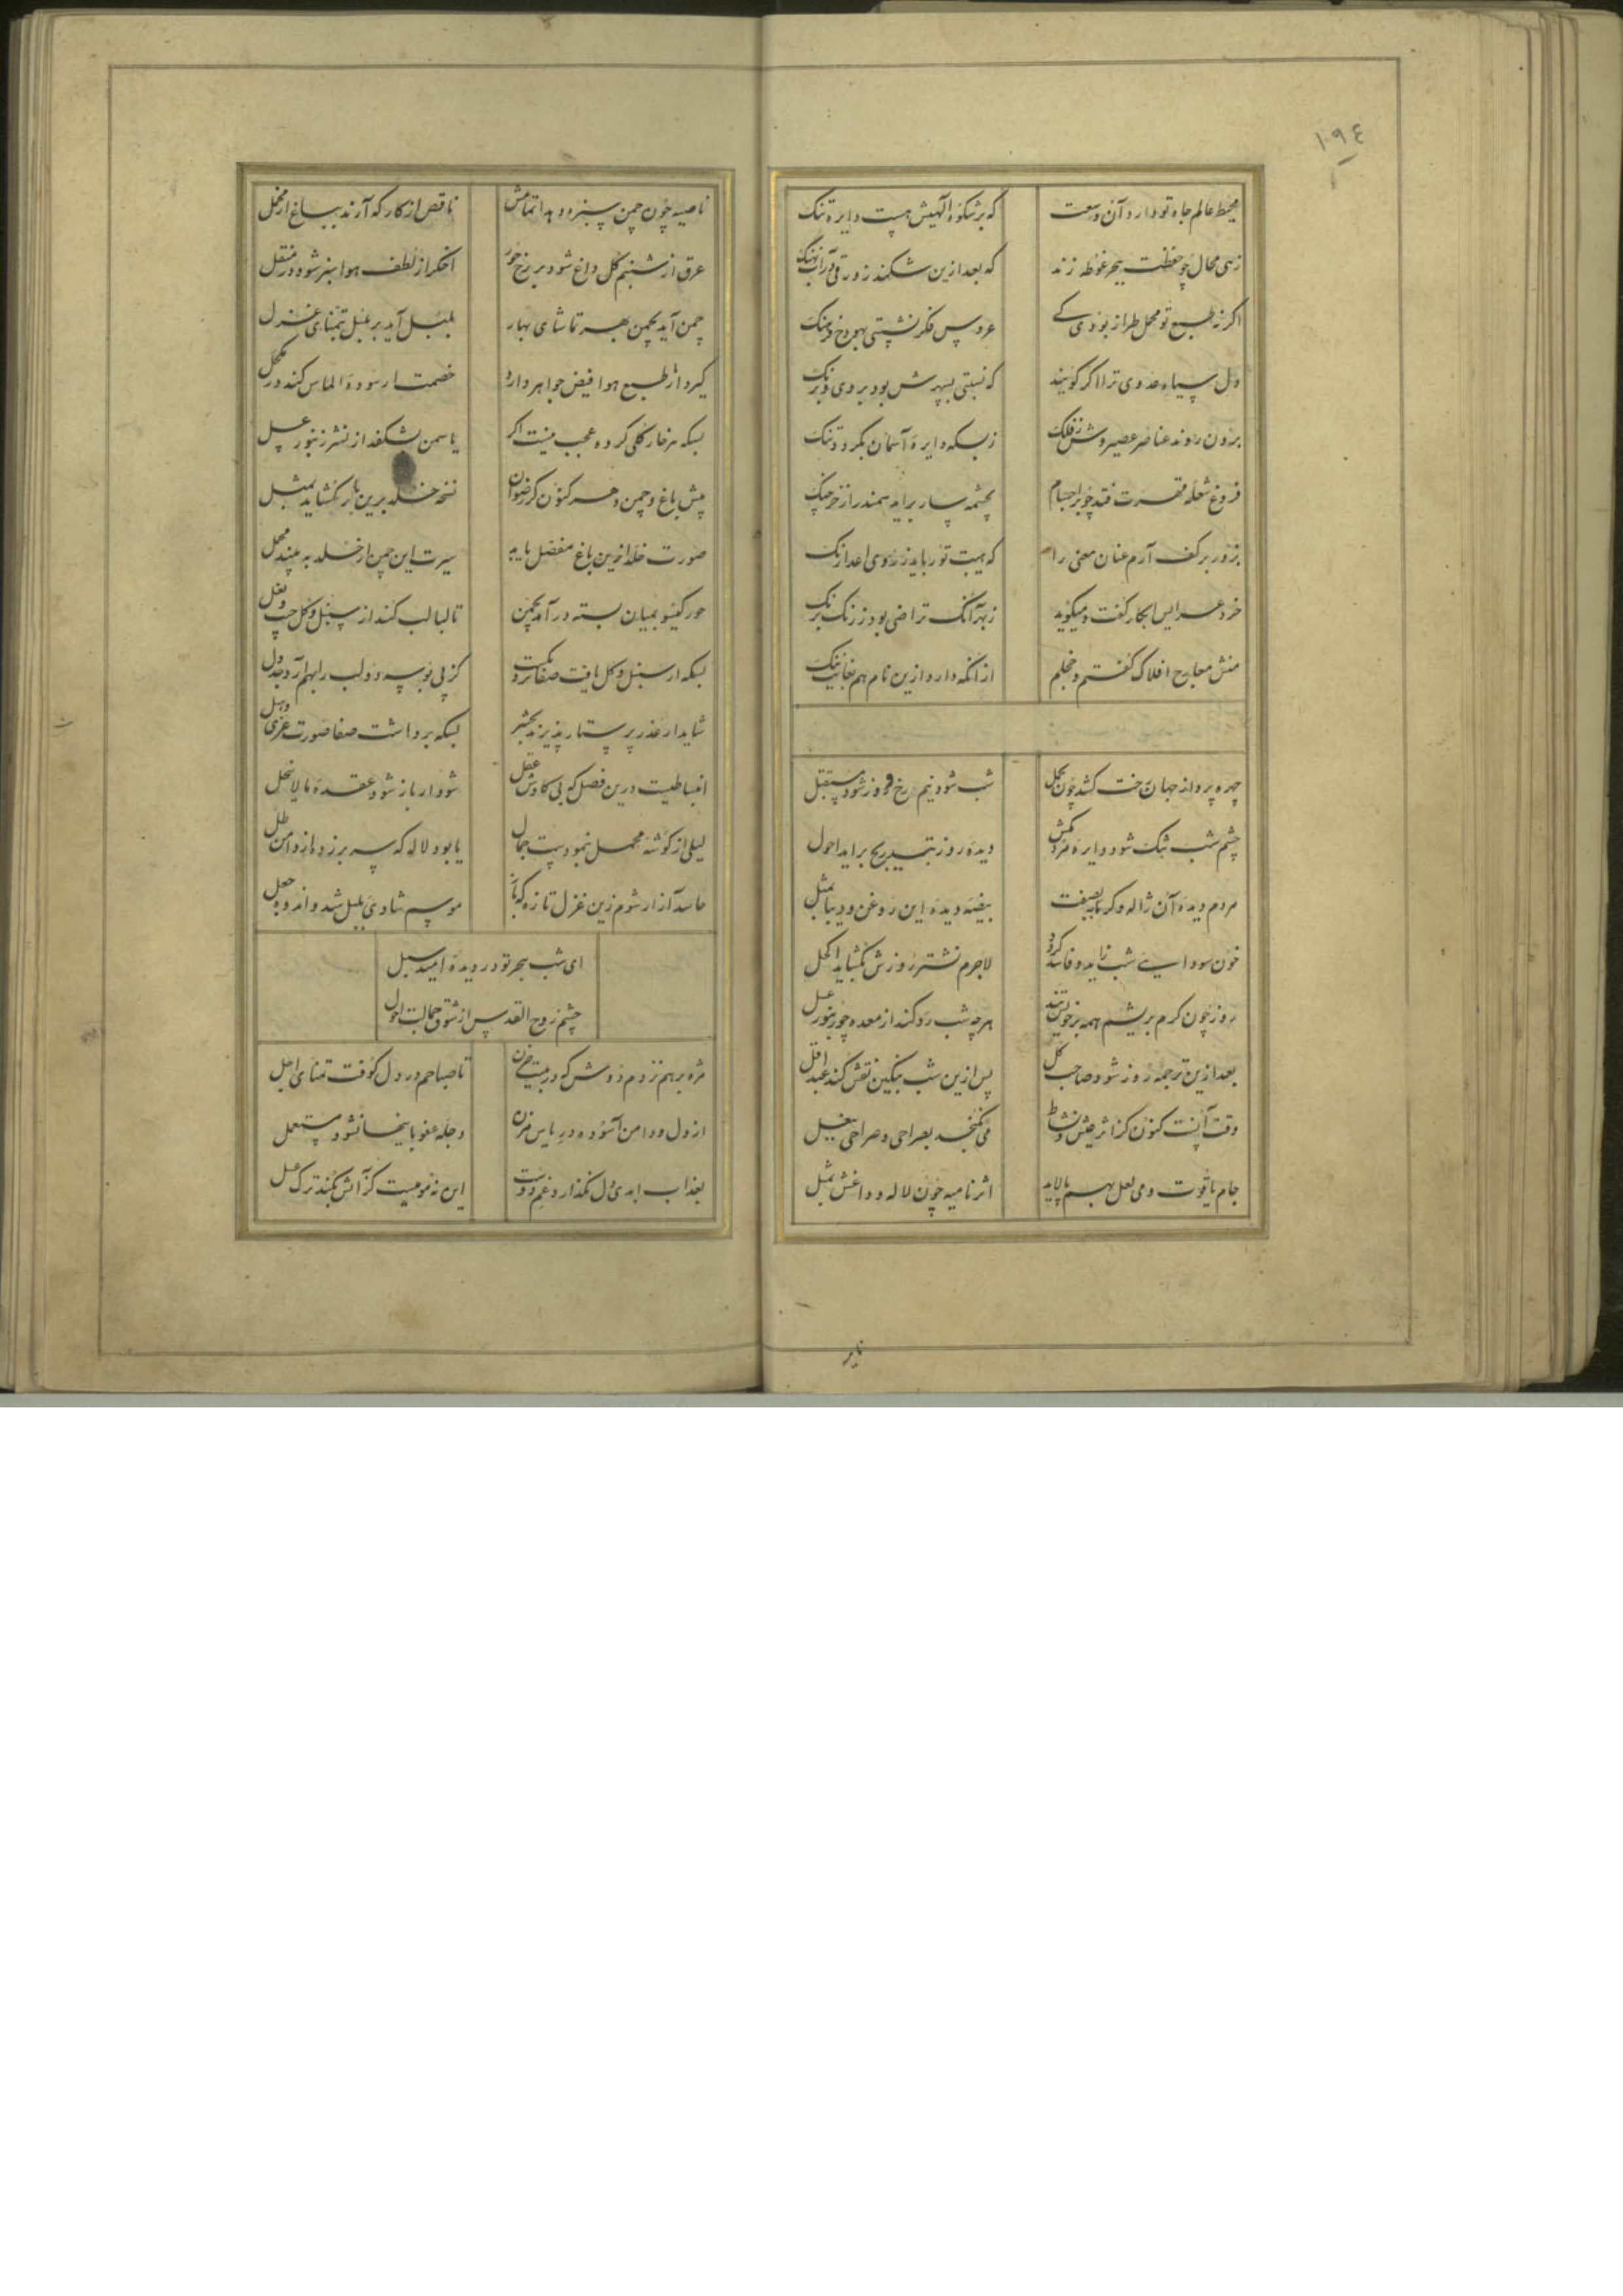 ١٩٤
محیط عالم جاه تو دارد آن وسعت
که بر شکوه آلهیش هست دایره تنک
زهی محال چو حفظت ببحر غوطه زند
که بعد ازین شکند زورقی در آب نهنک
اکر نه طبع تو محمل طراز بودی کے
عروس فکر نشستی بهودج فرهنک
دل سیاه عدوی ترا اکر کویند
که نسبتی بسپهرش بود بروی و برنک
برون روند عناصر عصیروش ز فلک
ز بسکه دایرهٔ آسمان بکردد تنک
فروغ شعله قهرت فتد چو بر اجسام
بچشمه سار برآید سمندر از خرچنک
بزور بر کف آرم عنان معنی را
که هیبت تو رباید ز روی اعدا رنک
خرد عرایس ابکار کفت و میکوید
ز بهر آنک تراضی بود ز رنک برنک
منش معارج افلاک کفتم و خجلم
از آنکه دارد ازین نام هم بغایت ننک
چهره پرداز جهان رخت کشد چون بحمل
شب شود نیم رخ و روز شود مستقبل
چشم شب تنک شود دایره مردمکش
دیده روز بتدریج براید احول
مردم دیده آن ژاله و کرما بصفت
بیضه دیده این روغن و دیبا بمثل
خون سودایے شب زاید و فاسد کردد
لاجرم نشتر روزش بکشاید اکحل
روز چون کرم بریشم همه بر خویش تند
هرچه شب رد کند از معده چو زنبور عسل
بعد ازین ترجمه روز شود صاحب کل
پس ازین شب بنکین نقش کند عبد اقل
وقت آنست کنون کز اثر عیش و نشاط
می نکنجد بصراحی و صراحی ببغل
جام یاقوت و می لعل بهم پالاید
اثر نامیه چون لاله و داغش بمثل
نایر
ناصیه چون چمن سبزه دهد اتمامش
ناقص از کار که آرند بباغ ار مخمل
عرق از شبنم کل داغ شود بر رخ حور
اخکر از لطف هوا سبز شود در منقل
چمن آید بچمن بهر تماشای بهار
بلبل آید بر بلبل بتمنای غزل
کیرد از طبع هوا فیض جواهر دارو
خصمت ار سوده الماس کند در مکحل
بسکه هر خار کلی کرده عجب نیست اکر
یاسمن بشکفد از نشتر زنبور عسل
پیش باغ و چمن دهر کنون کر رضوان
نسخه خلد برین باز نکشاید بمثل
صورت خلد ازین باغ مفصل یابد
سیرت این چمن از خلد به بیند مجمل
حور کیسو بمیان بسته درآمد بچمن
تا لبالب کند از سنبل و کل جیب و بغل
بسکه از سنبل و کل یافت صفا نزدیکست
کز پی بوسه دو لب را بهم آرد جدول
شاید ار عذر پرستار پذیرند بحشر
بسکه برداشت صفا صورت عزی و هبل
انبساطیست درین فصل که بی کاوش عقل
شود ار باز شود عقده ما لا ینحل
لیلی از کوشه محمل بنمودست جمال
یا بود لاله که سر برزده از دامن طلل
حاسد آزار شوم زین غزل تازه که باز
موسم شادی بلبل شد و اندوه جعل
ای شب هجر تو در دیده امید سبل
چشم روح القدس از شوق جمالت احول
مژه بر هم نزدم دوش که در بیت حزن
تا صبا حم در دل کوفت تمنای اجل
از دل و دامن آلوده در یأس مزن
دجله عفو باینها نشود مستعمل
بعذاب ابدی دل نکذارد غم دوست
این نه مومیست کز آتش بکند ترک عسل